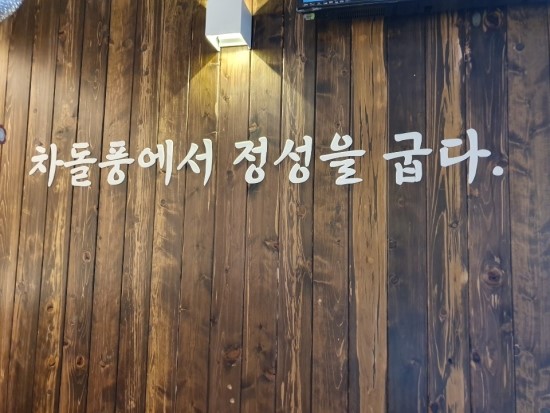 차돌풍에서 정성을 굽다.